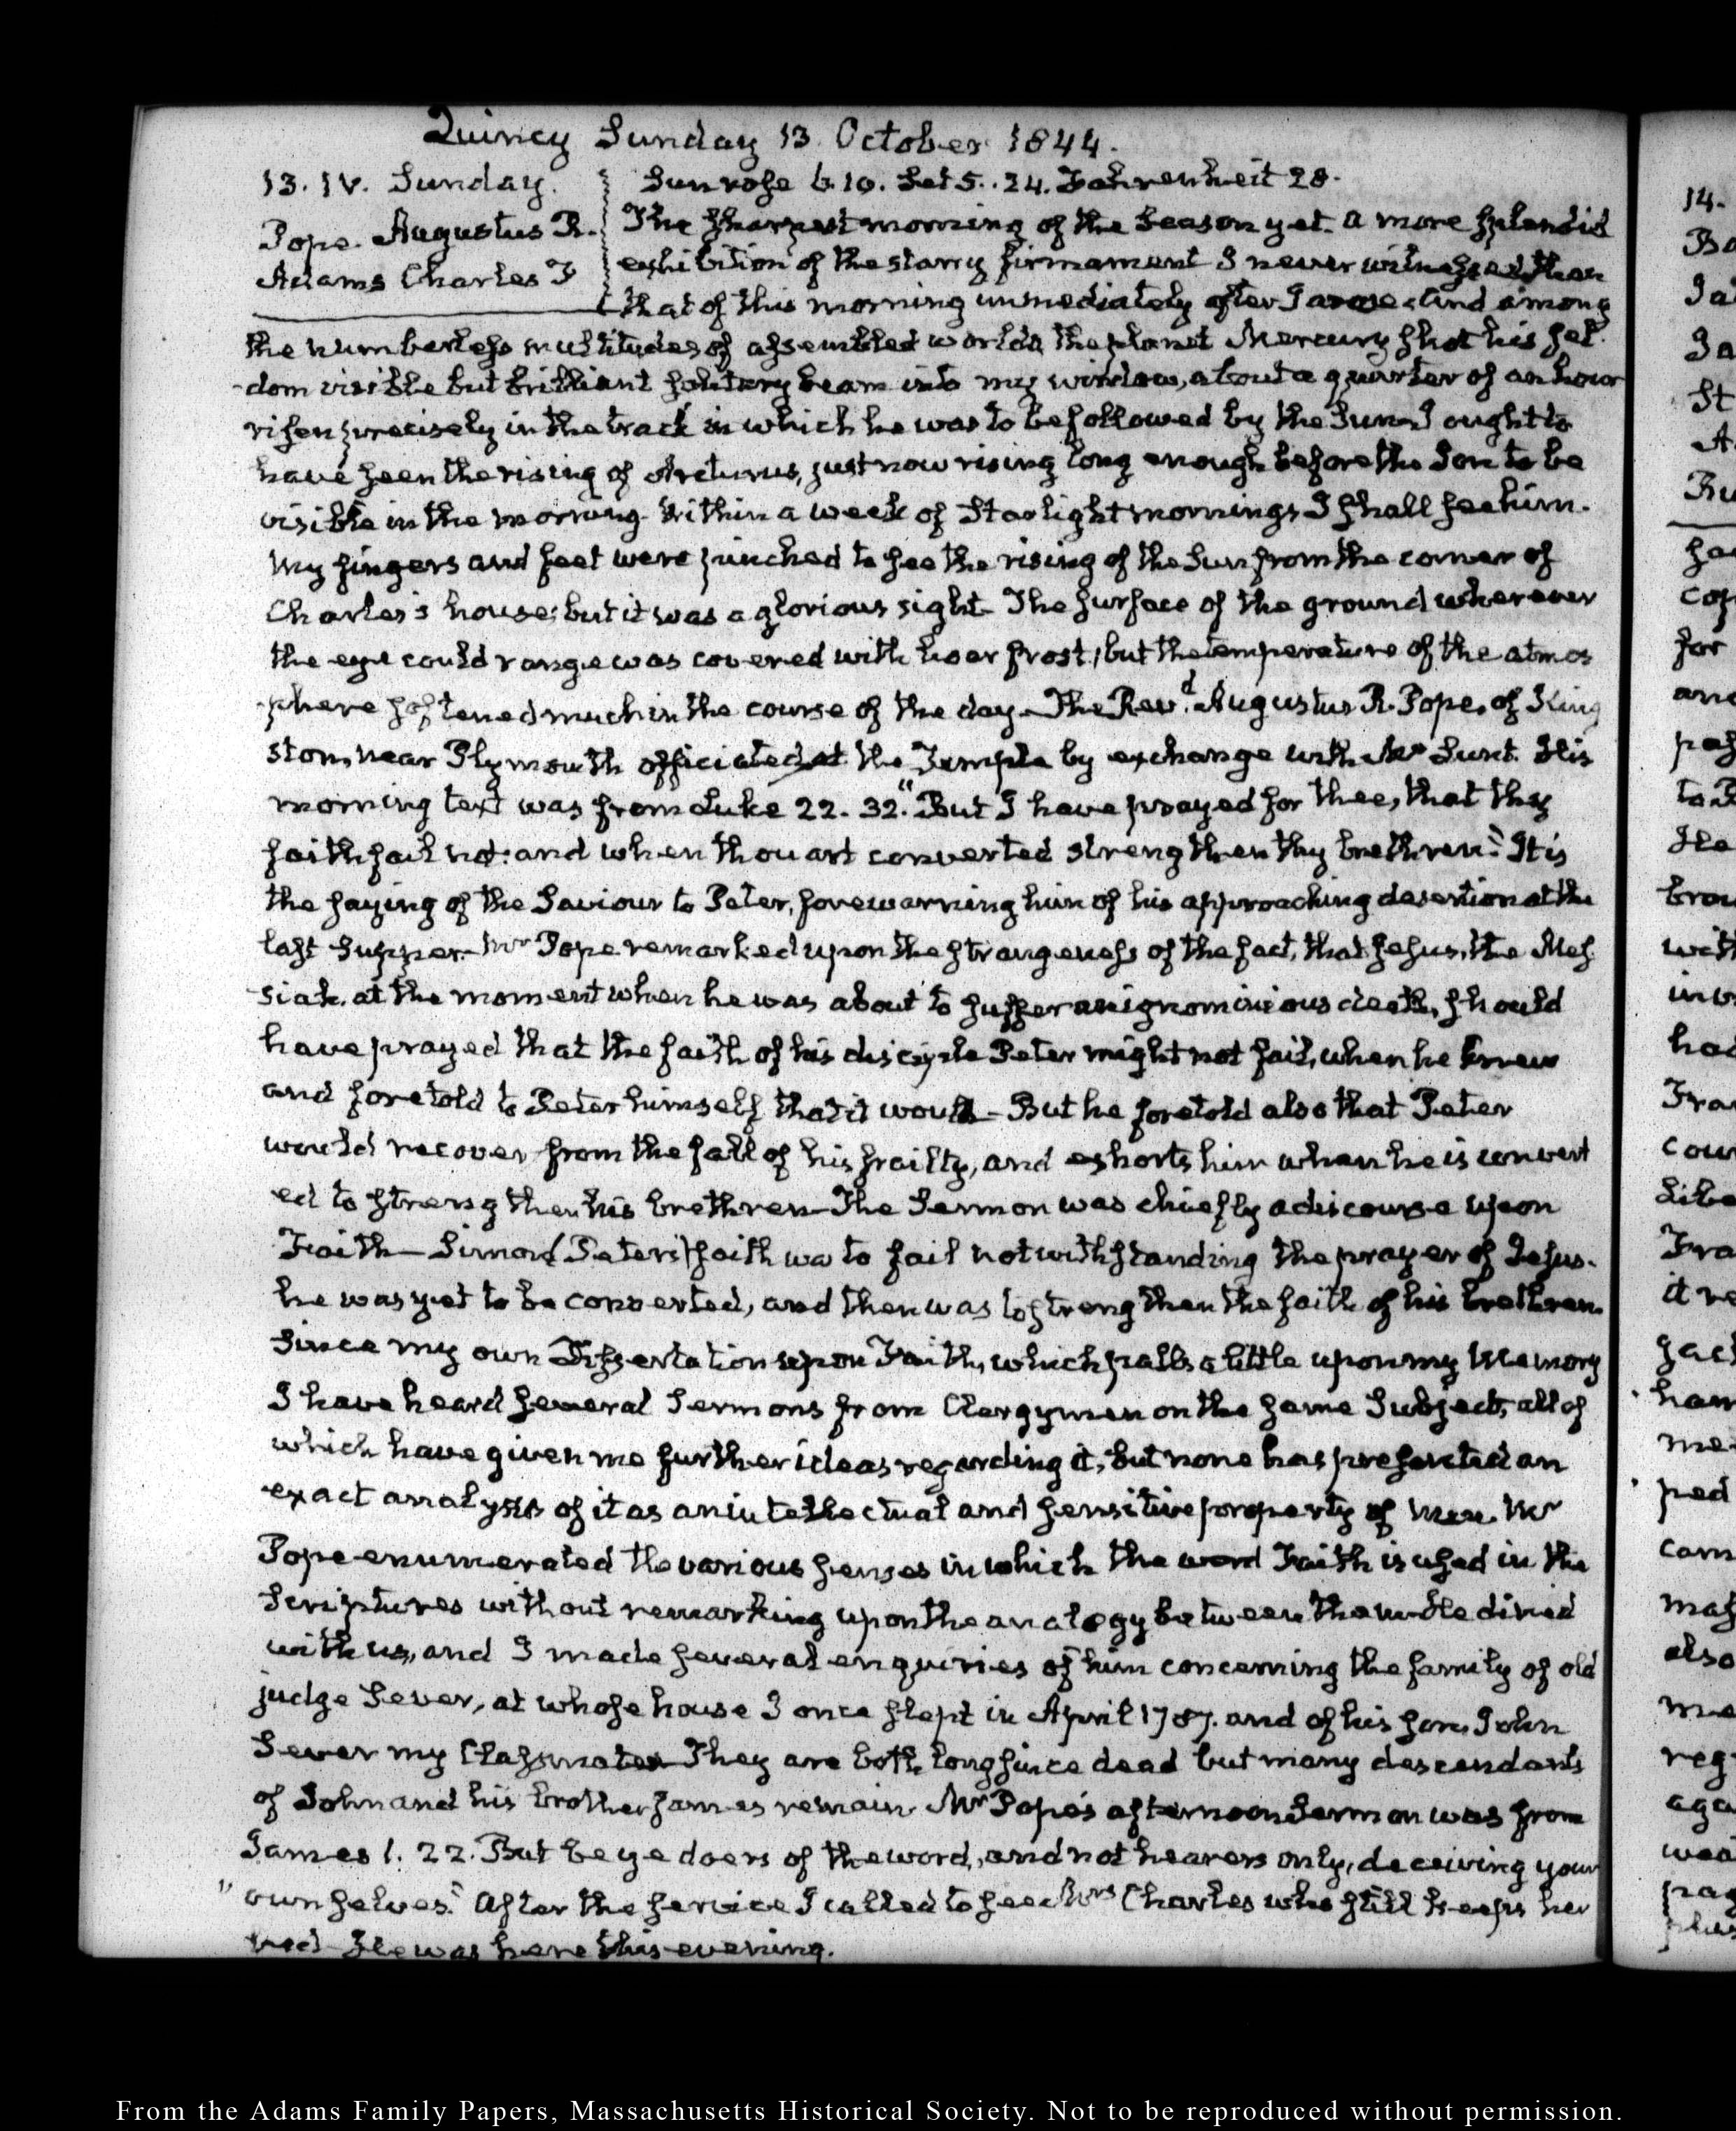 Quincy Sunday 13. October 1844.
13. IV. Sunday.
Pope. Augustus R.
Adams Charles F
Sun rose 6.10. Set 5..24. Fahrenheit 28.
The sharpest morning of the Season yet. a more splendid
exhibition of the starry firmament I never witnessed than
that of this morning immediately after I arose. And among
the numberless multitudes of assembled worlds, the planet Mercury shot his sel-
dom visible but brilliant solitary beam into my window, about a quarter of an hour
risen precisely in the track in which he was to be followed by the Sun. I ought to
have seen the rising of Arcturus, just now rising long enough before the Son to be
visible in the morning. Within a week of Starlight mornings I shall see him.
My fingers and feet were pinched to see the rising of the Sun from the corner of
Charles's house; but it was a glorious sight. The surface of the ground wherever
the eye could range was covered with hoar frost, but the temperature of the atmos
phere softened much in the course of the day. The Revd. Augustus R. Pope, of King
ston, near Plymouth officiated at the Temple by exchange with Mr Lunt. His
morning text was from Luke 22. 32. "But I have prayed for thee, that thy
faith fail not: and when thou art converted strengthen thy brethren." It is
the saying of the Saviour to Peter, forewarning him of his approaching desertion at the
last Supper. Mr Pope remarked upon the strangeness of the fact, that Jesus, the Mes
siah, at the moment when he was about to suffer an ignominious death, should
have prayed that the faith of his disciple Peter might not fail, when he knew
and foretold to Peter himself that it would— But he foretold also that Peter
would recover from the fall of his frailty, and exhorts him when he is convert
ed to strengthen his brethren—The Sermon was chiefly a discourse upon
Faith—Simon (Peter's) faith wa to fail notwithstanding the prayer of Jesus.
he was yet to be converted, and then was to strengthen the faith of his brethren.
Since my own Dissertation upon Faith, which palls a little upon my Memory
I have heard several Sermons from Clergymen on the same Subject, all of
which have given me further ideas regarding it, but none has presented an
exact analysis of it as an intellectual and sensitive property of Men. Mr
Pope enumerated the various senses in which the word Faith is used in the
Scriptures without remarking upon the analogy between them—He dined
with us, and I made several enquiries of him concerning the family of old
judge Sever, at whose house I once slept in April 1787. and of his son, John
Sever my Classmate. They are both long since dead but many descendants
of John and his brother James remain. Mr Pope's afternoon Sermon was from
James 1. 22. But be ye doers of the word, and not hearers only, deceiving your
" own selves." After the service I called to see Mrs Charles who still keeps her
bed—He was here this evening.
14.
Ba
Ja
Ja
St
A
Bu
for
and
to
He
brou
with
had
Fra
cour
Libe
Fra
it re
gac
ham
me
ped
cam
mas
also
me
reg
aga
was
pag
plus
From the Adams Family Papers, Massachusetts Historical Society. Not to be reproduced without permission.